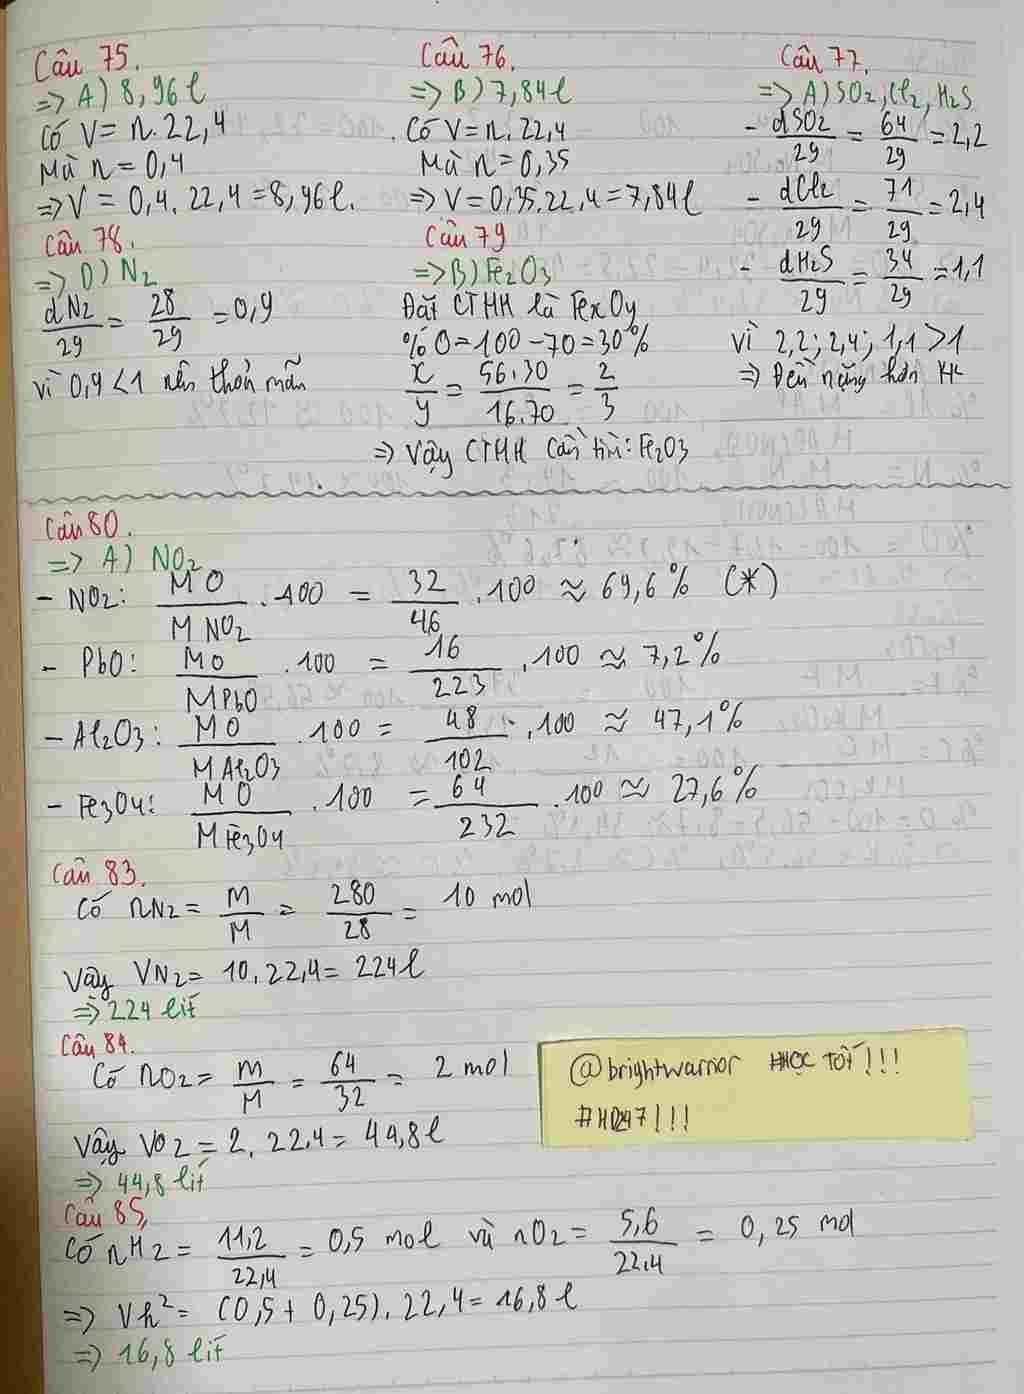 Câu 75.
=> A) 8,96 l
Có V = n. 22,4
Mà n = 0,4
=> V = 0,4. 22,4 = 8,96 l.
Câu 76.
=> B) 7,84 l
Có V = n. 22,4
Mà n = 0,35
=> V = 0,35. 22,4 = 7,84 l
Câu 77.
=> A) SO2, Cl2, H2S
- dSO2/29 = 64/29 = 2,2
- dCl2/29 = 71/29 = 2,4
- dH2S/29 = 34/29 = 1,1
vì 2,2; 2,4; 1,1 > 1
=> Đều nặng hơn KK
Câu 78.
=> D) N2
dN2/29 = 28/29 = 0,9
vì 0,9 < 1 nên thỏa mãn
Câu 79
=> B) Fe2O3
Đặt CTHH là FexOy
% O = 100 - 70 = 30%
x/y = 56.30/16.70 = 2/3
=> Vậy CTHH cần tìm: Fe2O3
Câu 80.
=> A) NO2
- NO2: MO/MNO2 . 100 = 32/46 . 100 ≈ 69,6% (*)
- PbO: MO/MPbO . 100 = 16/223 . 100 ≈ 7,2%
- Al2O3: MO/MAl2O3 . 100 = 48/102 . 100 ≈ 47,1%
- Fe3O4: MO/MFe3O4 . 100 = 64/232 . 100 ≈ 27,6%
Câu 83.
Có nN2 = M/M = 280/28 = 10 mol
Vậy VN2 = 10. 22,4 = 224 l
=> 224 lít
Câu 84.
Có nO2 = m/M = 64/32 = 2 mol
Vậy VO2 = 2. 22,4 = 44,8 l
=> 44,8 lít
@brightwarrior #HỌC TỐT!!!
#HD247!!!
Câu 85.
Có nH2 = 11,2/22,4 = 0,5 mol và nO2 = 5,6/22,4 = 0,25 mol
=> Vh² = (0,5 + 0,25). 22,4 = 16,8 l
=> 16,8 lít